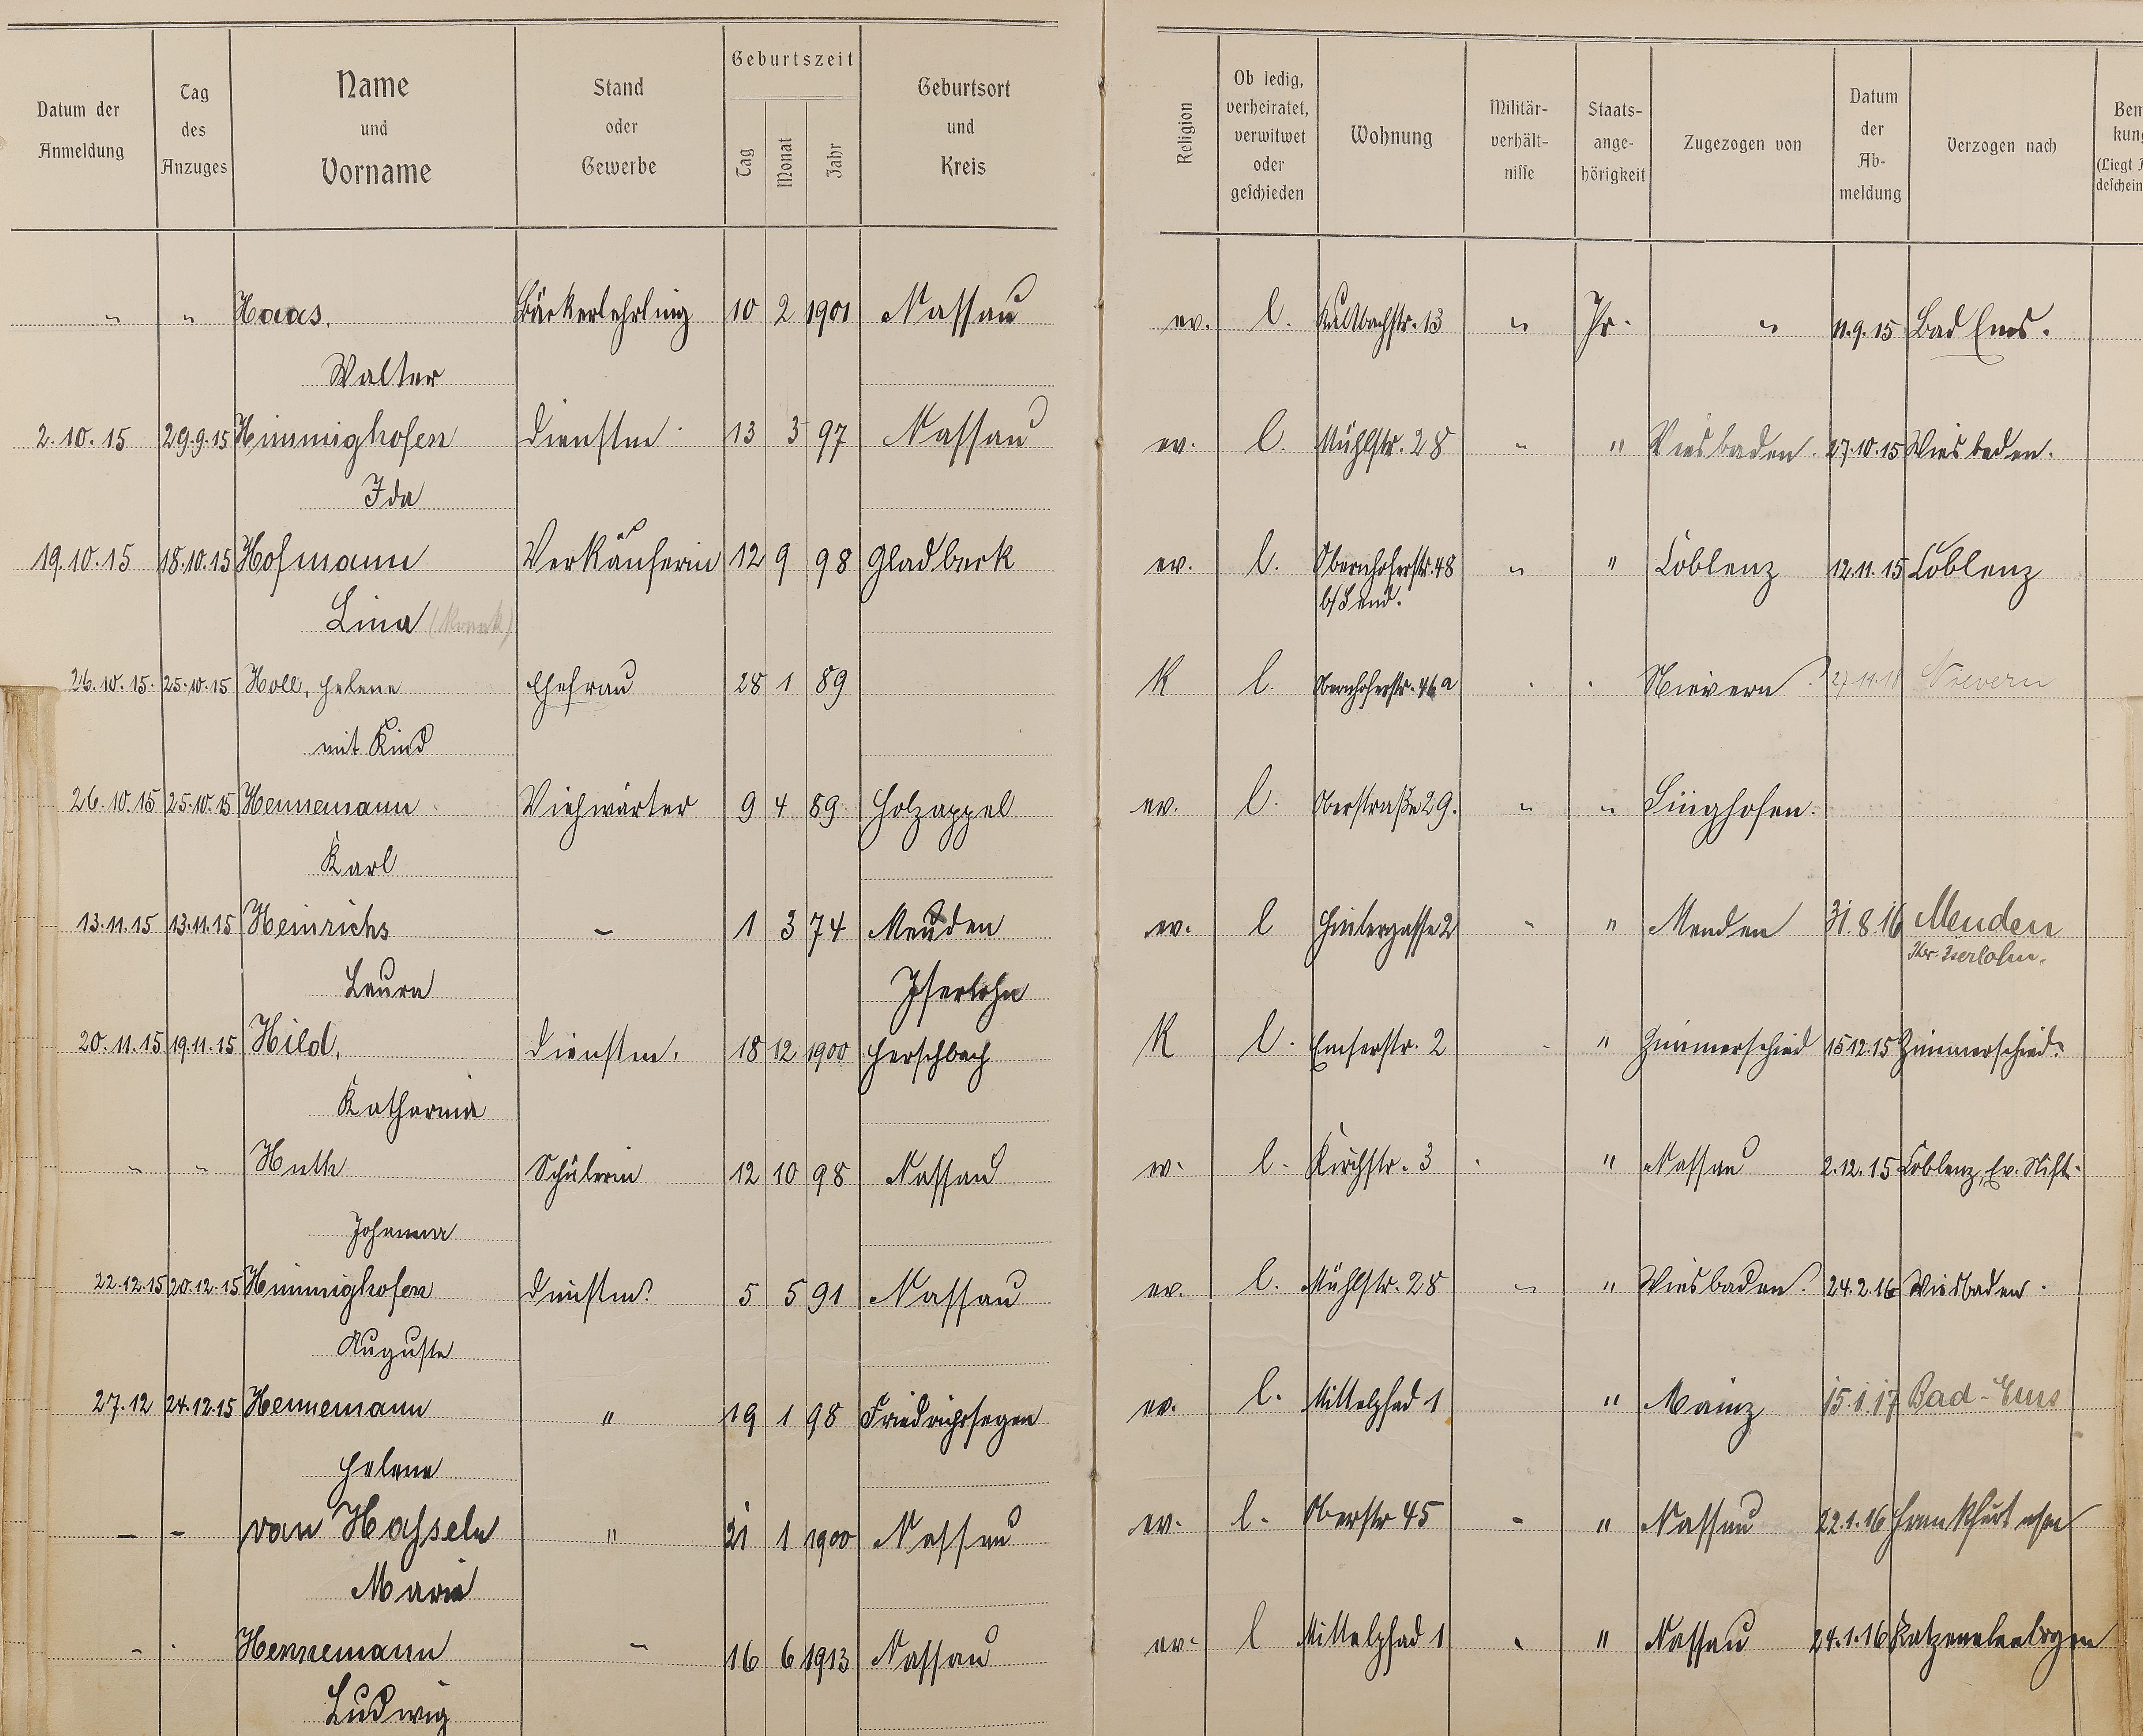 Datum der Anmeldung | Tag des Anzuges | Name und Vorname | Stand oder Gewerbe | Geburtszeit Tag Monat Jahr | Geburtsort und Kreis | Religion | Ob ledig, verheiratet, verwitwet oder geschieden | Wohnung | Militär-verhält-nisse | Staats-ange-hörigkeit | Zugezogen von | Datum der Ab-meldung | Verzogen nach
" " Haas, Bäckerlehrling 10 2 1901 Nassau ev. l. Kaltbachstr. 13 " Pr. " 11.9.15 Bad Ems.
Walter
2.10.15 29.9.15 Himmighofen Dienstm. 13 3 97 Nassau ev. l. Mühlstr. 28 " " Wiesbaden. 27.10.15 Wiesbaden.
Ida
19.10.15 18.10.15 Hofmann Verkäuferin 12 9 98 Gladbeck ev. l. Obernhoferstr. 48 " " Coblenz 12.11.15 Coblenz
Lina
26.10.15. 25.10.15 Holl, Helene Ehefrau 28 1 89 K l. Obernhoferstr. 46a Nievern Nievern
mit Kind
26.10.15 25.10.15 Hennemann Viehwärter 9 4 89 Holzappel ev. l. Oberstraße 29. " " Singhofen.
Karl
13.11.15 13.11.15 Heinrichs - 1 3 74 Menden ev. l Hintergasse 2 " " Menden 31.8.16 Menden
Kr. Iserlohn.
Laura Iserlohn
20.11.15 19.11.15 Hild, Dienstm. 18 12 1900 Herschbach K l. Emserstr. 2 - " Zimmerschied 15 12.15 Zimmerschied.
Katharina
" " Huth Schülerin 12 10 98 Nassau ev. l. Kirchstr. 3 " Nassau 2.12.15 Coblenz, Ev. Stift.
Johanna
22.12.15 20.12.15 Himmighofen Dienstm. 5 5 91 Nassau ev. l. Mühlstr. 28 " " Wiesbaden. 24.2.16 Wiesbaden.
Auguste
27.12 24.12.15 Hennemann " 19 1 98 Friedrichssegen ev. l. Mittelpfad 1 " Mainz 15.1.17 Bad-Ems
Helene
- - van Hasseln " 21 1 1900 Nassau ev. l. Oberstr 45 - " Nassau 22.1.16 Frankfurt
Maria
- Hennemann - 16 6 1913 Nassau ev. l Mittelpfad 1 " Nassau 24.1.16 Katzenelnbogen
Ludwig